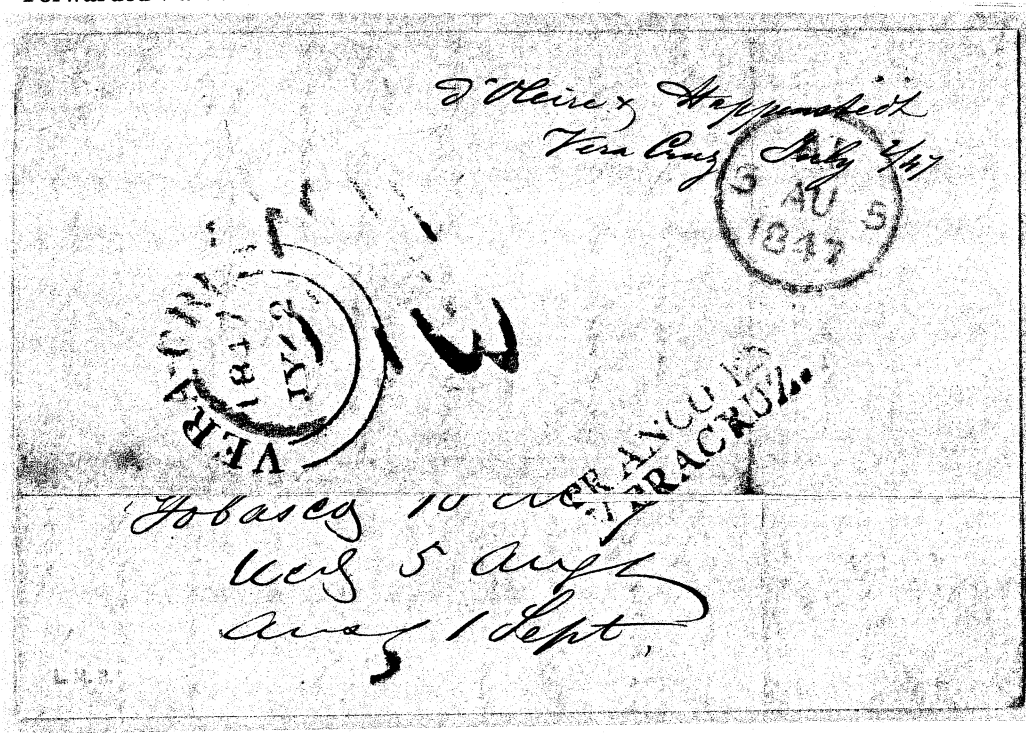 D'Oleire & Hoppenstedt
Vera Cruz July 2/47
5 AU 5
1847
VERA-CRUZ
1847
JY-2
FRANCO EN
VERACRUZ.
Tobasco 10
Recd 5 Augt
Ansd 1 Sept